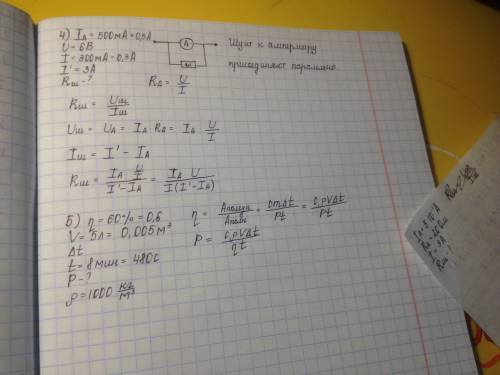 4) Iₐ = 500 мА = 0,5А
U = 6В
I = 300 мА = 0,3А
I' = 3А
Rш - ?
А
Rш
Шунт к амперметру
присоединяют параллельно
Rₐ = U/I
Rш = Uш/Iш
Uш = Uₐ = Iₐ · Rₐ = Iₐ · U/I
Iш = I' - Iₐ
Rш = (Iₐ · U/I)/(I' - Iₐ) = (Iₐ U)/(I(I' - Iₐ))
5) η = 60% = 0,6
V = 5л = 0,005 м³
Δt
t = 8 мин = 480с
P - ?
ρ = 1000 кг/м³
η = Aполезн/Aполн = cmΔt/Pt = cρVΔt/Pt
P = cρVΔt/ηt